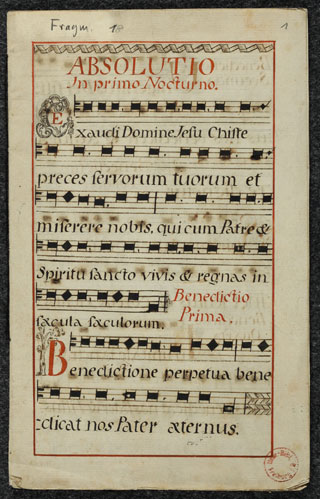 Fragm. 18
1
ABSOLUTIO
In primo Nocturno.
Exaudi Domine Jesu Chiste
preces servorum tuorum et
miserere nobis, qui cum Patre &
Spiritu sancto vivis & regnas in
sæcula sæculorum.
Benedictio
Prima.
Benedictione perpetua bene
dicat nos Pater æternus.